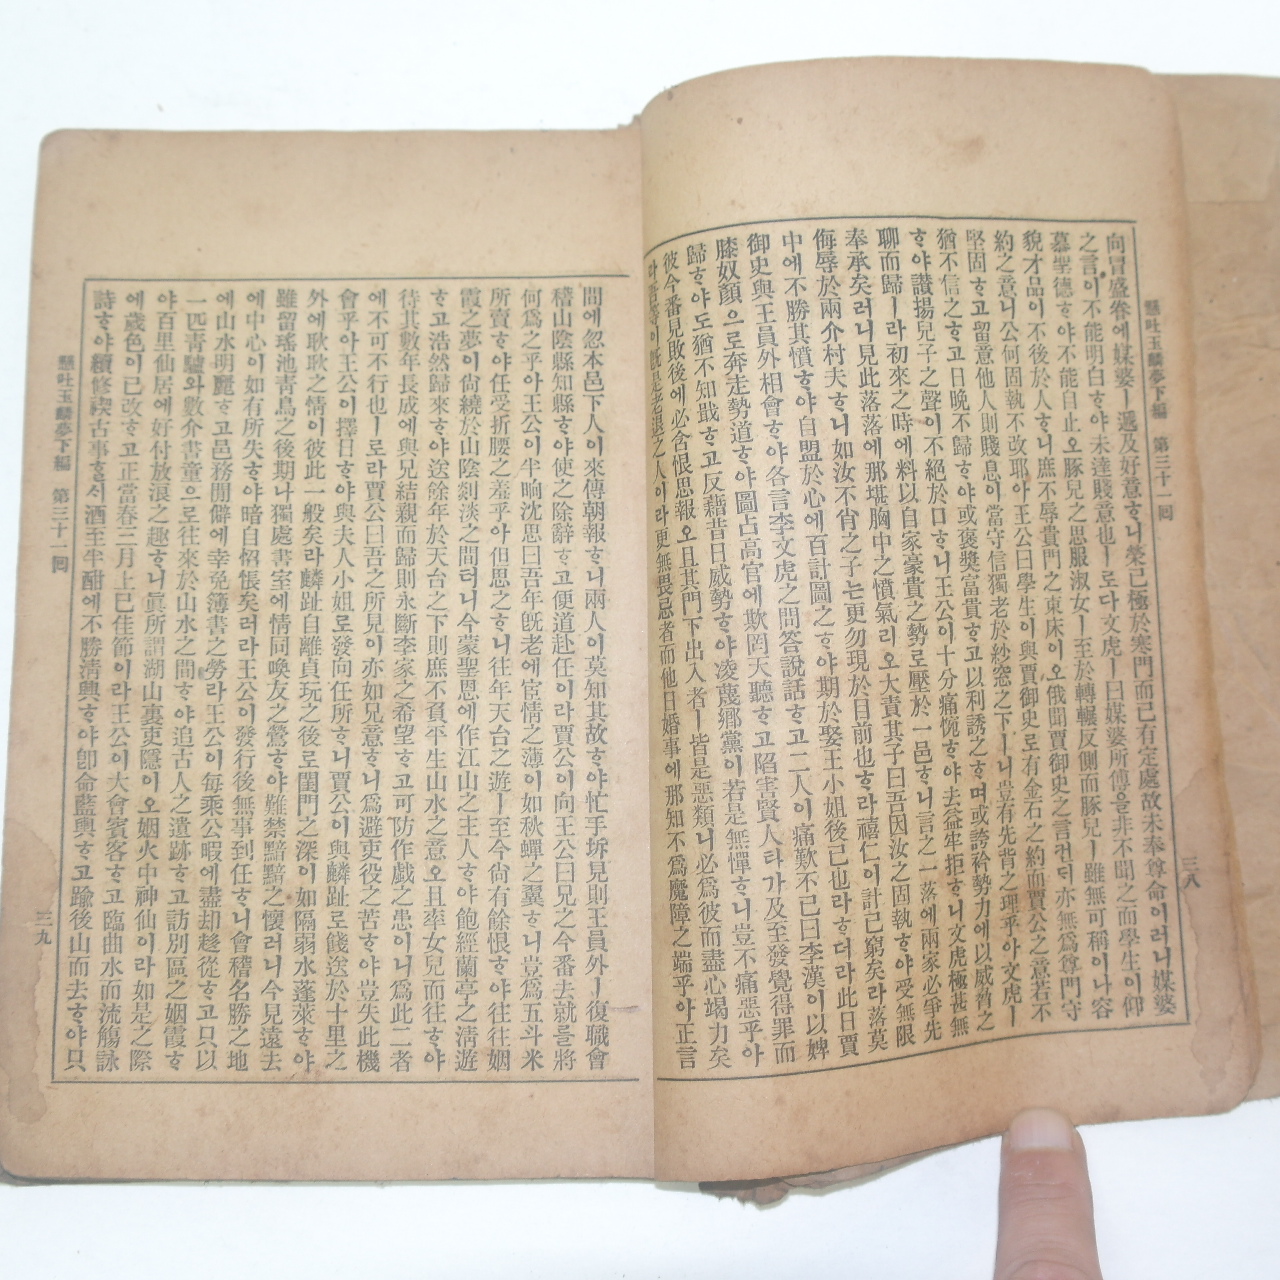 懸吐玉麟夢下編 第三十一囘 三八
向冒盛眷에媒婆ㅣ遞及好意ᄒᆞ니榮已極於寒門而已有定處故未奉尊命이러니媒婆
之言이不能明白ᄒᆞ야未達賤意也ㅣ로다文虎ㅣ曰媒婆所傳을非不聞之而學生이仰
慕聖德ᄒᆞ야不能自止오豚兒之思服淑女ㅣ至於轉輾反側而豚兒ㅣ雖無可稱이나容
貌才品이不後於人ᄒᆞ니庶不辱貴門之東床이오俄聞賈御史之言컨ᄃᆡ亦無爲尊門守
約之意니公何固執不改耶아王公曰學生이與賈御史로有金石之約而賈公之意若不
堅固ᄒᆞ고留意他人則賤息이當守信獨老於紗窓之下ㅣ니豈有先背之理乎아文虎ㅣ
猶不信之ᄒᆞ고日晚不歸ᄒᆞ야或褒獎富貴ᄒᆞ고以利誘之ᄒᆞ며或誇矜勢力에以威脅之
ᄒᆞ야讃揚兒子之聲이不絕於口ᄒᆞ니王公이十分痛惋ᄒᆞ야去益牢拒ᄒᆞ니文虎極甚無
聊而歸ㅣ라初來之時에料以自家豪貴之勢로壓於一邑ᄒᆞ니言之一落에兩家必爭先
奉承矣러니見此落落에那堪胸中之憤氣리오大責其子曰吾因汝之固執ᄒᆞ야受無限
侮辱於兩介村夫ᄒᆞ니如汝不肖之子ᄂᆞᆫ更勿現於目前也ᄒᆞ라禧仁이計已窮矣라落莫
中에不勝其憤ᄒᆞ야自盟於心에百計圖之ᄒᆞ야期於娶王小姐後已也라ᄒᆞ더라此日賈
御史與王員外相會ᄒᆞ야各言李文虎之問答說話ᄒᆞ고二人이痛歎不已曰李漢이以婢
膝奴顏으로奔走勢道ᄒᆞ야圖占高官에欺罔天聽ᄒᆞ고陷害賢人타가及至發覺得罪而
歸ᄒᆞ야도猶不知戢ᄒᆞ고反藉昔日威勢ᄒᆞ야凌蔑鄉黨이若是無憚ᄒᆞ니豈不痛惡乎아
彼今番見敗後에必含恨思報오且其門下出入者ㅣ皆是惡類니必爲彼而盡心竭力矣
라吾等이旣是老退之人이라更無畏忌者而他日婚事에那知不爲魔障之端乎아正言
間에忽本邑下人이來傳朝報ᄒᆞ니兩人이莫知其故ᄒᆞ야忙手坼見則王員外ㅣ復職會
稽山陰縣知縣ᄒᆞ야使之除辭ᄒᆞ고便道赴任이라賈公이向王公曰兄之今番去就를將
何爲之乎아王公이半晌沈思曰吾年旣老에宦情之薄이如秋蟬之翼ᄒᆞ니豈爲五斗米
所賣ᄒᆞ야任受折腰之羞乎아但思之ᄒᆞ니往年天台之遊ㅣ至今尙有餘恨ᄒᆞ야往往姻
霞之夢이尙繞於山陰剡淡之間터니今蒙聖恩에作江山之主人ᄒᆞ야飽經蘭亭之淸遊
ᄒᆞ고浩然歸來ᄒᆞ야送餘年於天台之下則庶不負平生山水之意오且率女兒而往ᄒᆞ야
待其數年長成에與兄結親而歸則永斷李家之希望ᄒᆞ고可防作戱之患이니爲此二者
에不可不行也ㅣ로라賈公曰吾之所見이亦如兄意ᄒᆞ니爲避吏役之苦ᄒᆞ야豈失此機
會乎아王公이擇日ᄒᆞ야與夫人小姐로發向任所ᄒᆞ니賈公이與麟趾로餞送於十里之
外에耿耿之情이彼此一般矣라麟趾自離貞玩之後로閨門之深이如隔弱水蓬萊ᄒᆞ야
雖留瑤池靑鳥之後期나獨處書室에情同喚友之鶯ᄒᆞ야難禁黯黯之懷러니今見遠去
에中心이如有所失ᄒᆞ야暗自怊悵矣러라王公이發行後無事到任ᄒᆞ니會稽名勝之地
에山水明麗ᄒᆞ고邑務閒僻에幸免簿書之勞라王公이每乘公暇에盡却趍從ᄒᆞ고只以
一匹靑驢와數介書童으로往來於山水之間ᄒᆞ야追古人之遺跡ᄒᆞ고訪別區之姻霞ᄒᆞ
야百里仙居에好付放浪之趣ᄒᆞ니眞所謂湖山裏吏隱이오姻火中神仙이라如是之際
에歲色이已改ᄒᆞ고正當春三月上巳佳節이라王公이大會賓客ᄒᆞ고臨曲水而流觴詠
詩ᄒᆞ야續修禊古事ᄒᆞᆯᄉᆡ酒至半酣에不勝淸興ᄒᆞ야卽命藍輿ᄒᆞ고踰後山而去ᄒᆞ야只
懸吐玉麟夢下編 第三十一囘 三九